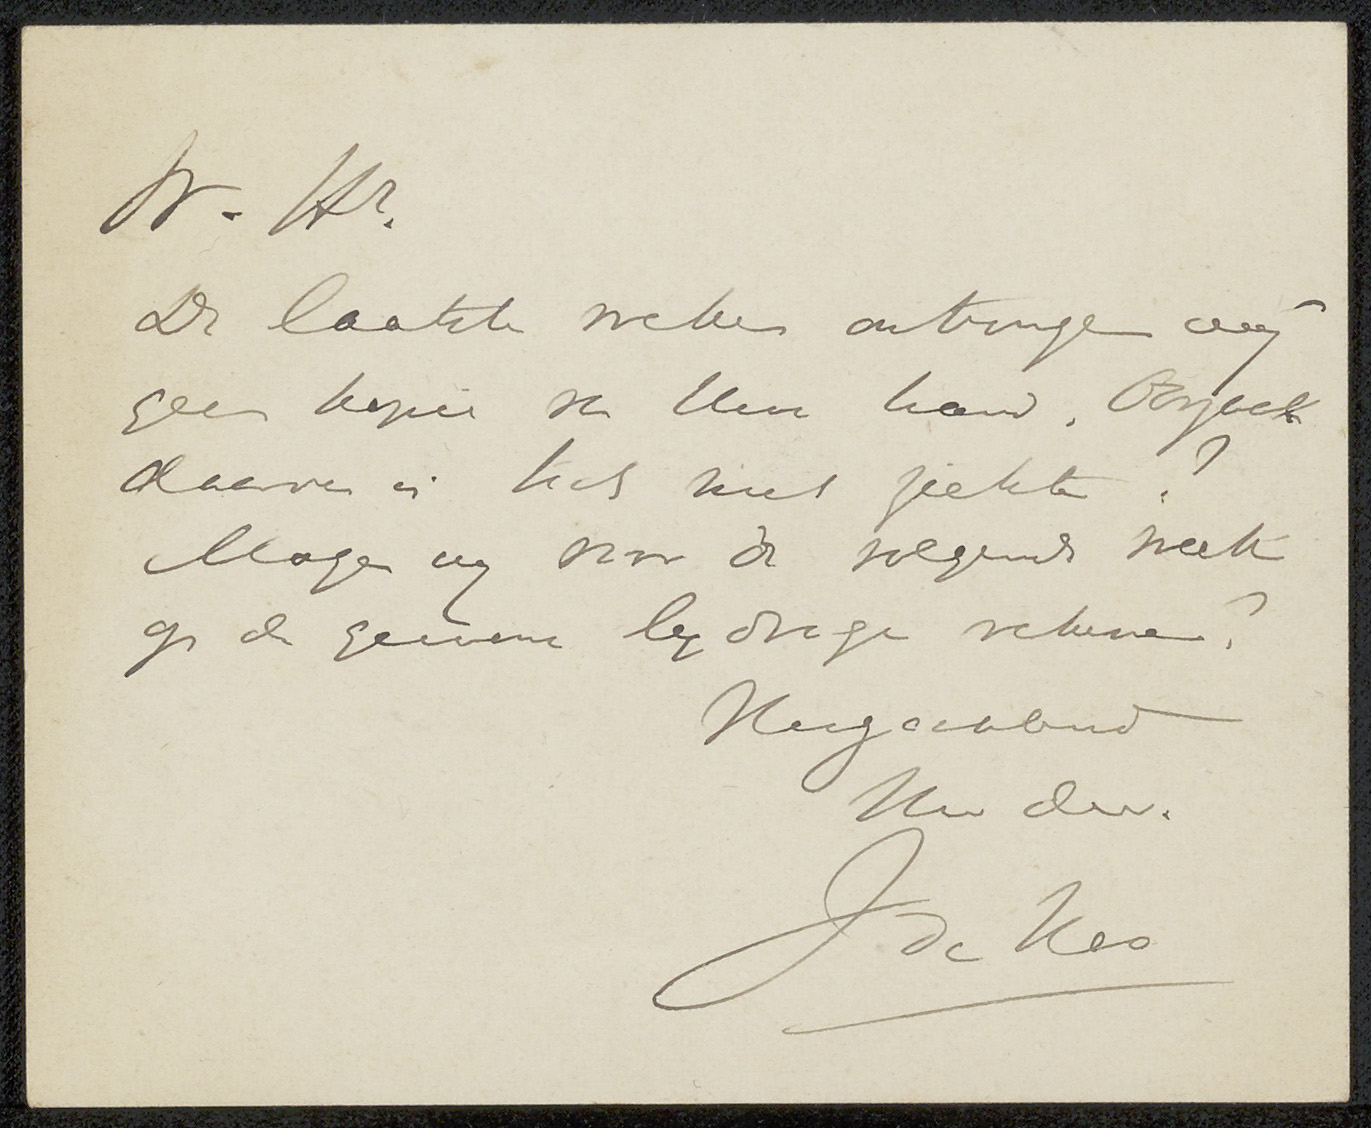 W. Hr.
De laatste weken ontvingen wij
geen kopie van Uwe hand.
daarvan is toch niet ziekte?
Mogen wij voor de volgende week
op de gewone bijdrage rekenen?
Hoogachtend
Uw dw.
J de Koo